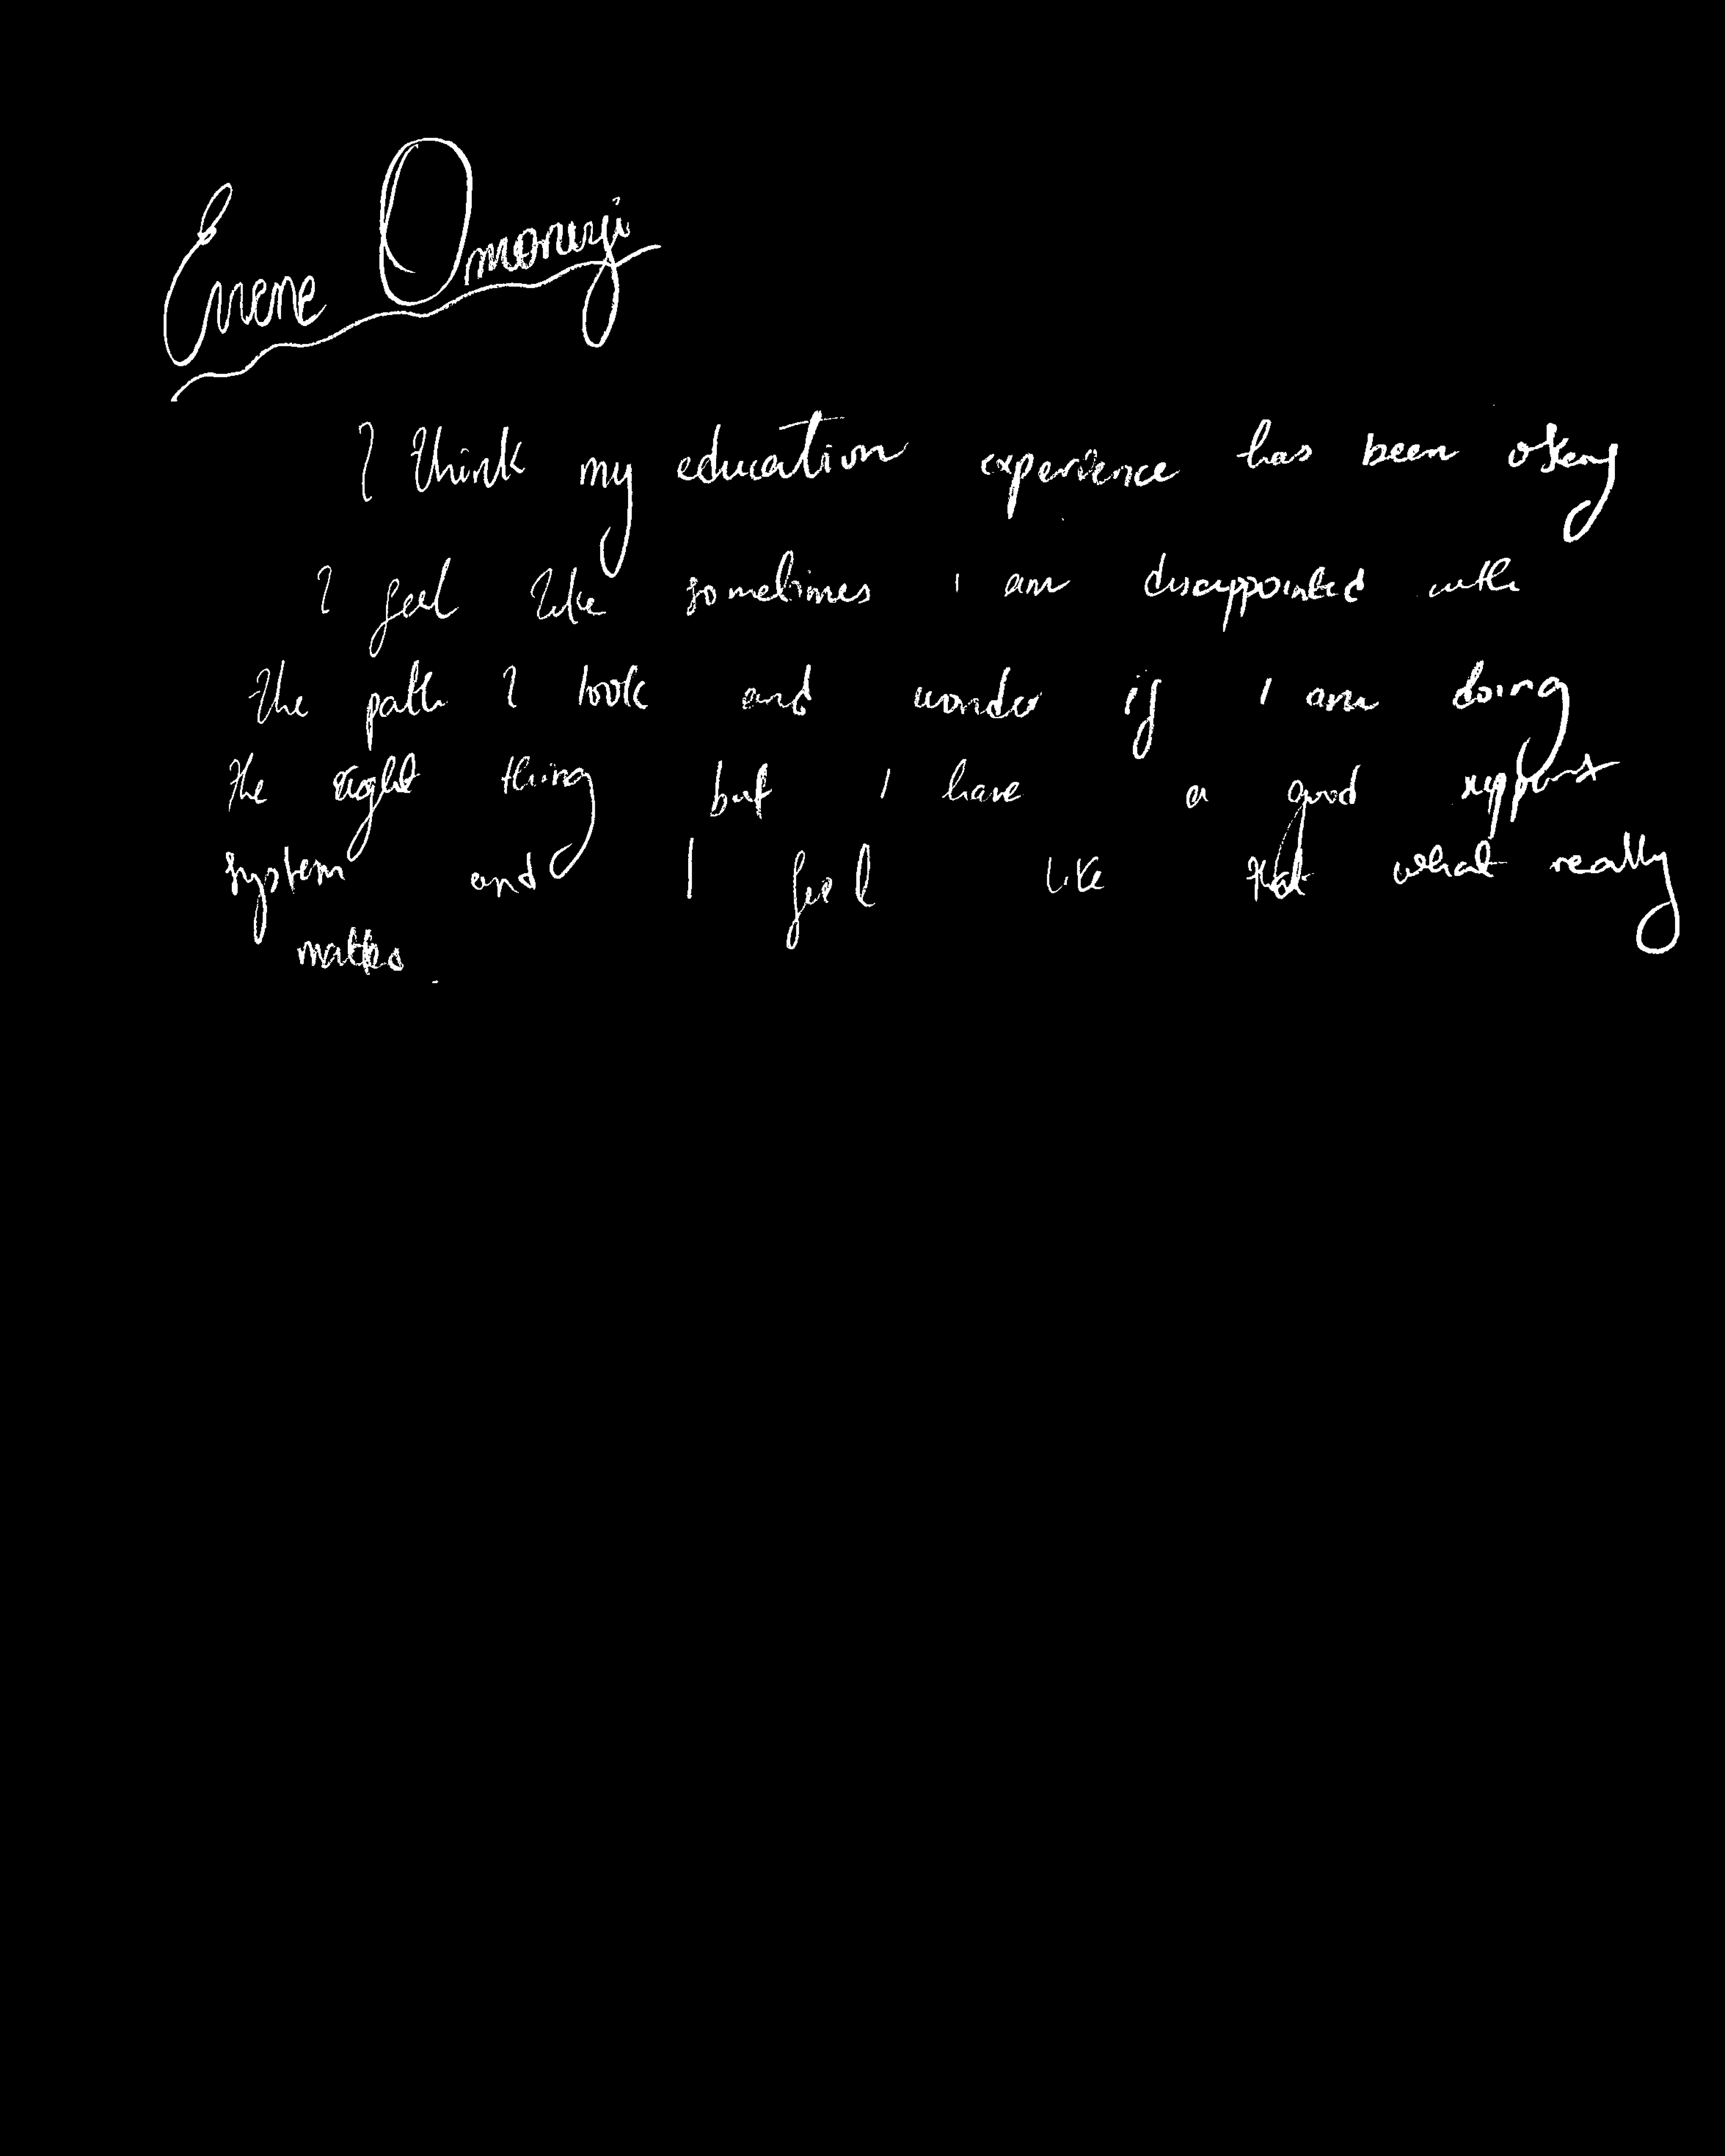 Omoruyi
I think my education experience has been okay
I feel like sometimes i am disappointed with
the path I took and wonder if I am doing
the right thing but I have a good support
system and I feel like that what really
matters.